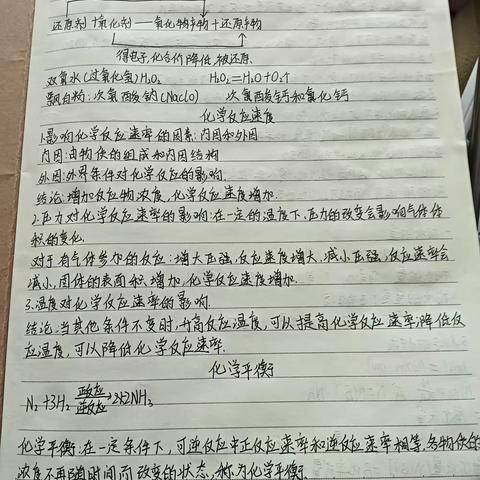 还原剂+氧化剂——氧化产物+还原产物
得电子,化合价降低,被还原.
双氧水(过氧化氢)H₂O₂ H₂O₂=H₂O+O₂↑
漂白粉:次氯酸钠(NaClO) 次氯酸钙和氯化钙
化学反应速度
1.影响化学反应速率的因素:内因和外因
内因:由物质的组成和内因结构
外因:外界条件对化学反应的影响.
结论:增加反应物浓度,化学反应速度增加.
2.压力对化学反应速率的影响:在一定的温度下,压力的改变会影响气体体
积的变化.
对于有气体参加的反应:增大压强,反应速度增大,减小压强,反应速率会
减小,固体的表面积增加,化学反应速度增加.
3.温度对化学反应速率的影响
结论:当其他条件不变时,升高反应温度,可以提高化学反应速率,降低反
应温度,可以降低化学反应速率.
化学平衡
N₂+3H₂ 正反应 逆反应 2NH₃
化学平衡:在一定条件下,可逆反应中正反应速率和逆反应速率相等,各物质的
浓度不再随时间而改变的状态,称为化学平衡.